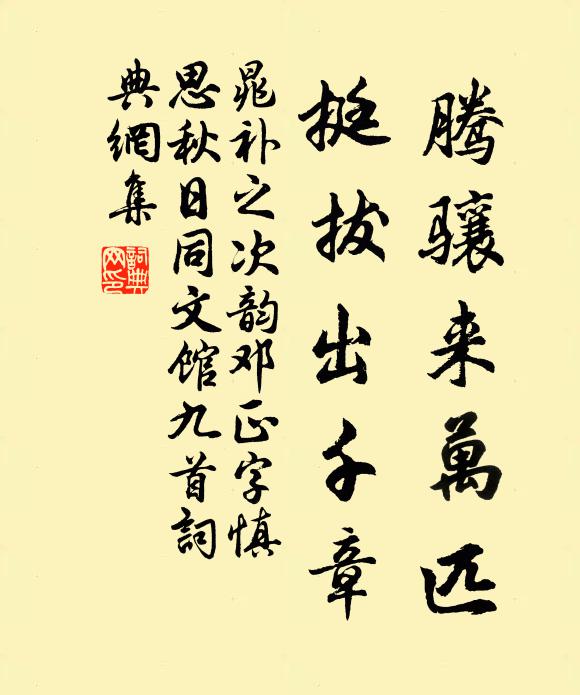 腾骧来萬匹
挺拔出千章
晁补之次韵邓正字慎
思秋日同文馆九首詞
典網集
詞典网印